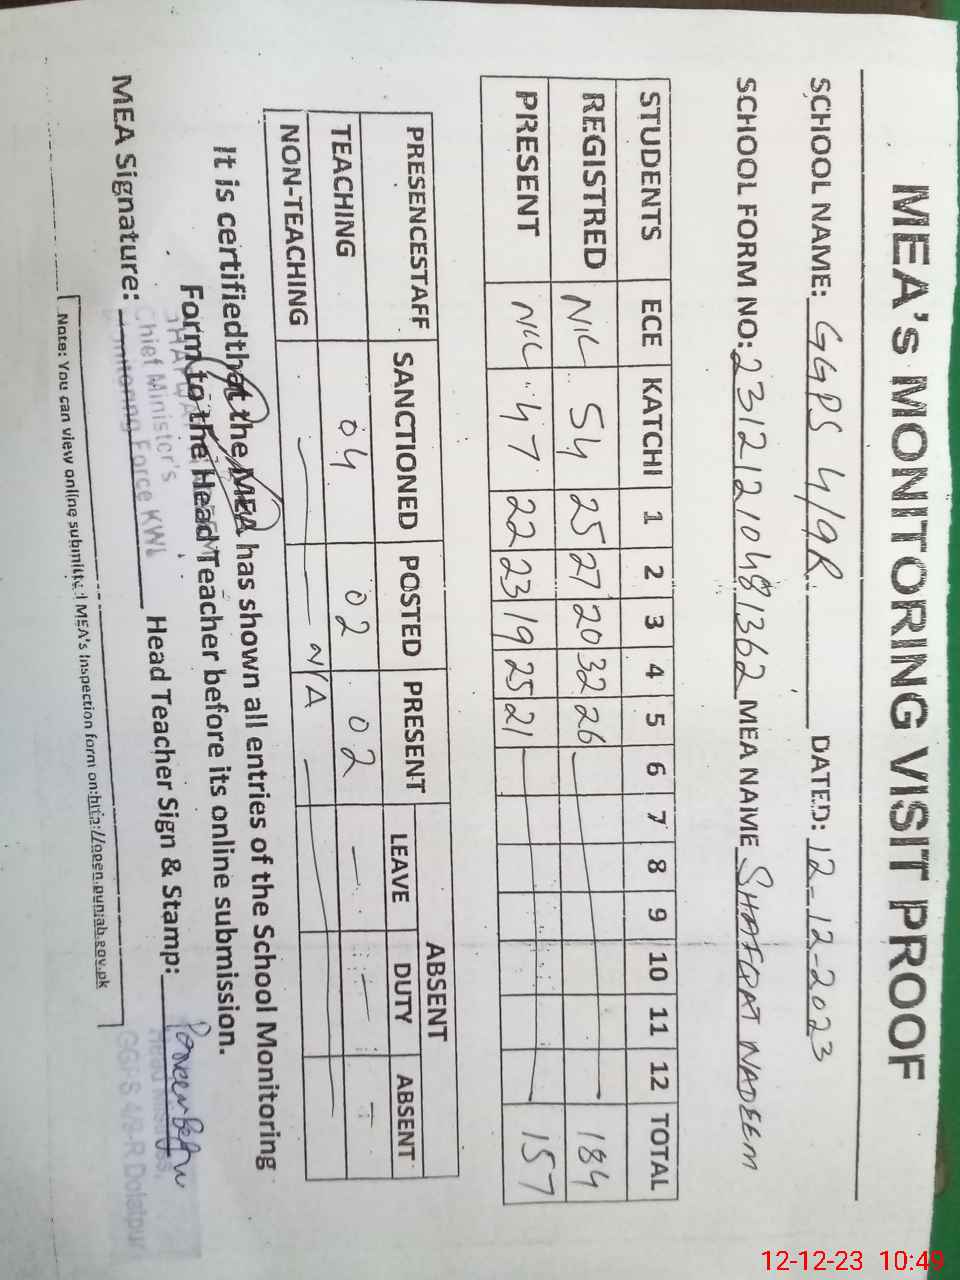 MEA's MONITORING VISIT PROOF
SCHOOL NAME: GGPS 4/9R. DATED: 12-12-2023
SCHOOL FORM NO: 23121210481362 MEA NAME SHAFQAT NADEEM
STUDENTS ECE KATCHI 1 2 3 4 5 6 7 8 9 10 11 12 TOTAL
REGISTRED NIL 54 25 27 20 32 26 184
PRESENT NIL 47 22 23 19 25 21 157
ABSENT
PRESENCESTAFF SANCTIONED POSTED PRESENT LEAVE DUTY ABSENT
TEACHING 04 02 02 — — —
NON-TEACHING N/A
It is certifiedthat the MEA has shown all entries of the School Monitoring
Form to the Head Teacher before its online submission.
Chief Minister's
Monitoring Force KWL
MEA Signature: Head Teacher Sign & Stamp:
GGPS 4/9-R Dolatpur
Note: You can view online submitted MEA's Inspection form on:http://open.punjab.gov.pk
12-12-23 10:49